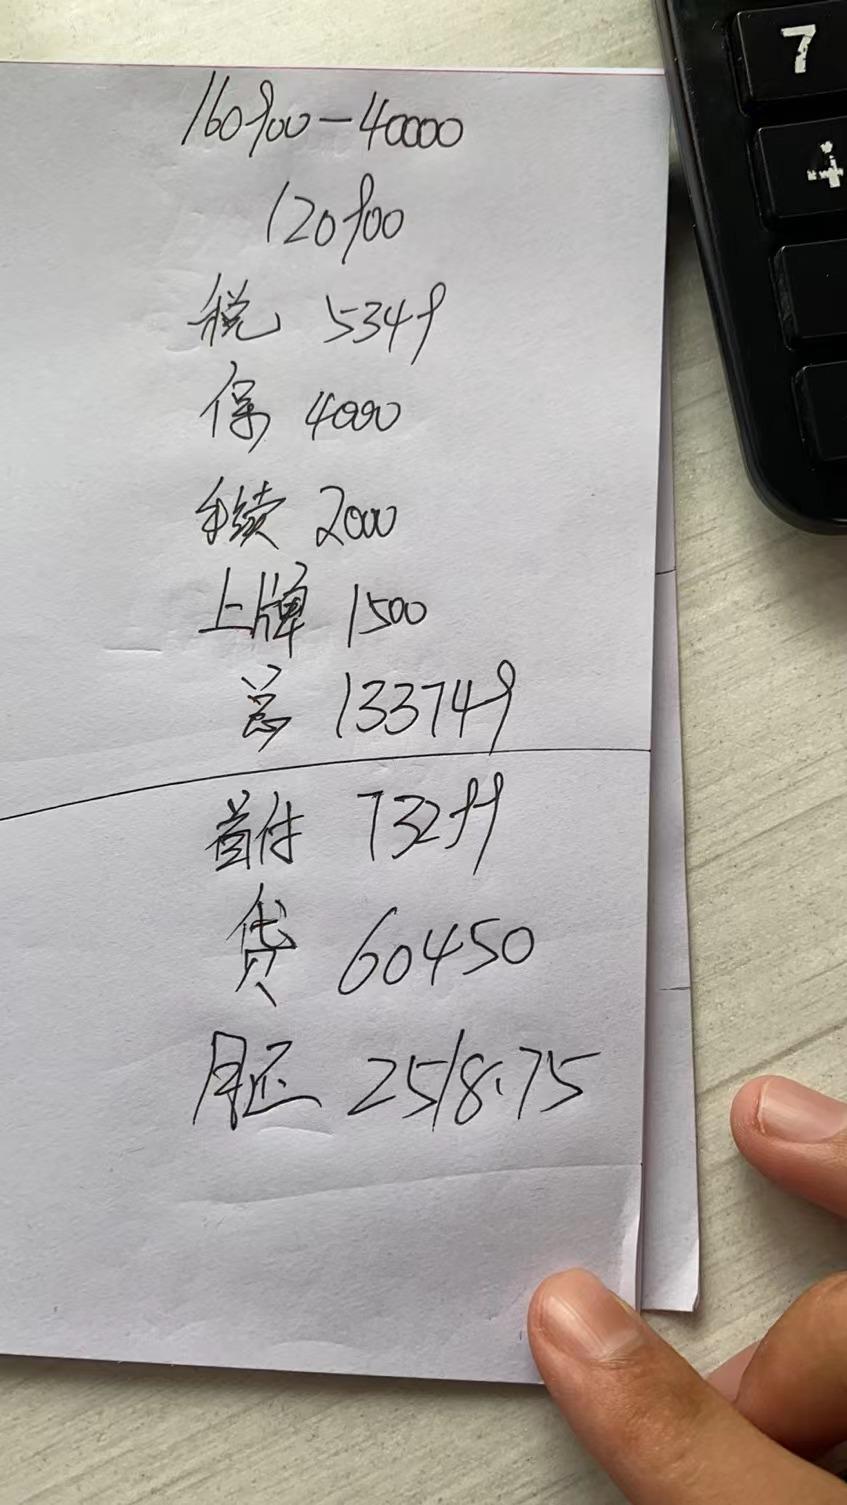 160900-40000
120900
税 5349
保 4000
手续 2000
上牌 1500
总 133749
首付 73299
贷 60450
月还 2518.75
7
4